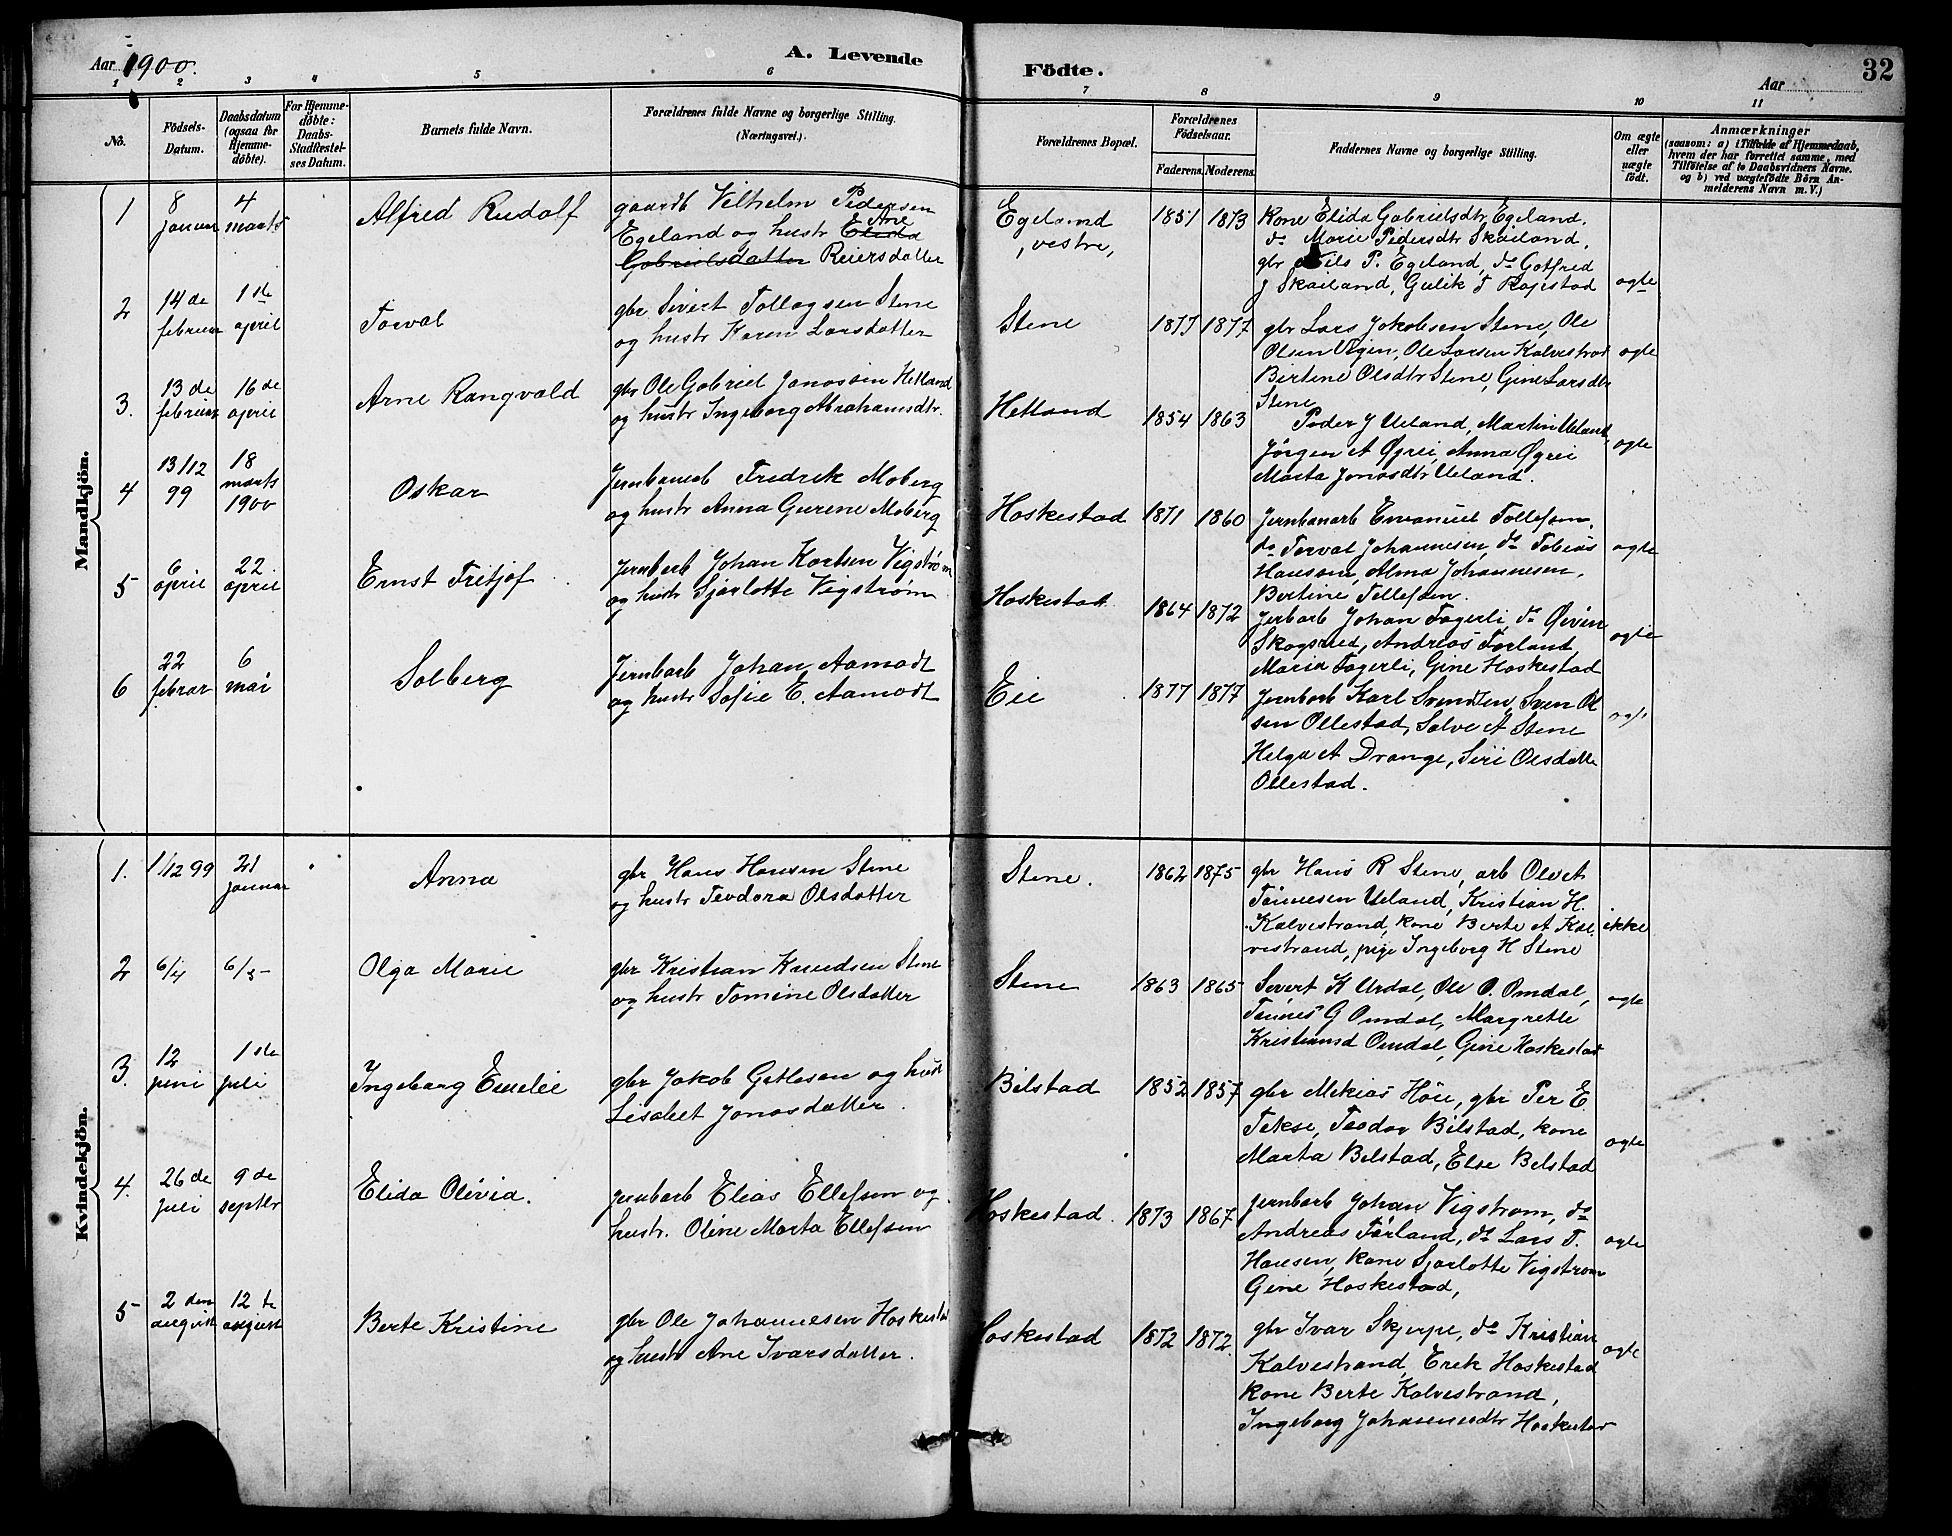 Aar 1900.
A. Levende
Födte.
Aar
32
1
2
3
4
5
6
7
8
9
10
11
No.
Födsels-Datum.
Daabsdatum (ogsaa for Hjemme-døbte).
For Hjemme-døbte: Daabs-Stadfæstel-ses Datum.
Barnets fulde Navn.
Forældrenes fulde Navne og borgerlige Stilling.
(Næringsvei.)
Forældrenes Bopæl.
Forældrenes Födselsaar.
Faderens.
Moderens.
Faddernes Navne og borgerlige Stilling.
Om ægte eller uægte født.
Anmærkninger
(saasom: a) i Tilfælde af Hjemmedaab,
hvem der har forrettet samme, med
Tilføielse af to Daabsvidners Navne.
og b) ved uægtefødte Börn An-
melderens Navn m. V.)
Mandkjön.
1
8 januar
4 marts
Alfred Rudolf
gaardb Vilhelm Pedersen
Egeland og hustr Elida Ane
Gabrielsdatter Reiersdatter
Egeland
, vestre,
1851
1873
Kone Elida Gabrielsdtr Egeland.
do Marie Pedersdtr Skåiland.
gbr Nils P. Egeland, do Gotfred
J Skåiland, Gulik T Rapstad
ægte
2
14 de februar
1 ste april
Torval
gbr Sivert Tollagsen Stene
og hustr Karen Larsdatter
Stene
1877
1877
gbr Lars Jakobsen Stene, Ole
Olsen Vigen, Ole Larsen Kalvestrad
Birtine Olsdtr Stene, Gine Larsdtr
Stene
ægte
3.
13 de februar
16 de april
Arne Rangvald
gbr Ole Gabriel Janassen Hetland
og hustr Ingeborg Abrahamsdtr.
Hetland
1854
1863
Peder J Ueland, Martin Ueland,
Jørgen A Øgrei, Anna Øgrei
Marta Jonasdtr Ueland.
ægte
4
13/12 99
18 marts 1900
Oskar
Jernbanearb Fredrik Moberg
og hustr Anna Gurine Moberg
Hoskestad
1871
1860
Jernbanarb Emanuel Tollefsen.
do Torval Johannesen, do Tobias
Hanssen, Alma Johannesen.
Bertine Tellefsen.
ægte
5
6 april
22. april
Ernst Fritjof
Jernbarb Johan Karlsen Vigstrøm
og hustr Sjarlotte Vigstrøm
Hoskestad
1864
1872
Jerbarb Johan Fagerli, do Øivin
Skogsrud, Andreas Førland,
Maria Fagerli, Gine Hoskestad
ægte
6
22 febrar
6 mai
Solberg
Jernbarb Johan Aamodt
og hustr Sofie E. Aamodt
Eie
1877
1877
Jernbarb Karl Svendsen, Sven Ol
sen Ollestad, Salve A Stene
Helga A Drange, Siri Olsdatte
Ollestad.
Kvindekjön.
1.
1/12 99
21 januar
Anna
gbr Hans Hansen Stene
og hustr Teodora Olsdatter
Stene.
1862
1875
gbr Hans R Stene, arb Olvet
Tønnesen Ueland, Kristian H.
Kalvestrand, kone Berte A Kal
vestrand, pige Ingeborg H Stene
ikke
2
6/4
6/5 -
Olga Marie
gbr Kristian Knudsen Stene
og hustr Tomine Olsdatter
Stene
1863
1865
Severt K Urdal, Ole O. Omdal,
Tønnes G Omdal, Margrethe
Kristiansd Omdal, Gine Hoskestad
ægte
3.
12 juni
1 ste juli
Ingeborg Emelie
gbr Jakob Getlesen og hust
Lisabet Jonasdatter.
Bilstad
1852
1857
gbr Mekias Høie, gbr Per E.
Tekse, Teodor Bilstad, kone
Marta Bilstad, Else Bilstad
ægte
4.
26 de juli
9 de septbr
Elida Olivia.
jernbarb Elias Ellefsen og
hustr. Oline Marta Ellefsen
Hoskestad.
1873
1867
jernbarb Johan Vigstrøm, do
Andreas Førland, do Lars T.
Hansen, kone Sjarlotte Vigstrøm
Gine Hoskestad,
ægte
5
2 den august
12 te august
Berte Kristine
gbr Ole Johannesen Hoskestad
og hustr Ane Ivarsdatter.
Hoskestad
1872
1872.
gbr Ivar Skjerpe, do Kristian
Kalvestrand, Erek Hoskestad
kone Berte Kalvestrand,
Ingeborg Johannesdtr Hoskestad
ægte